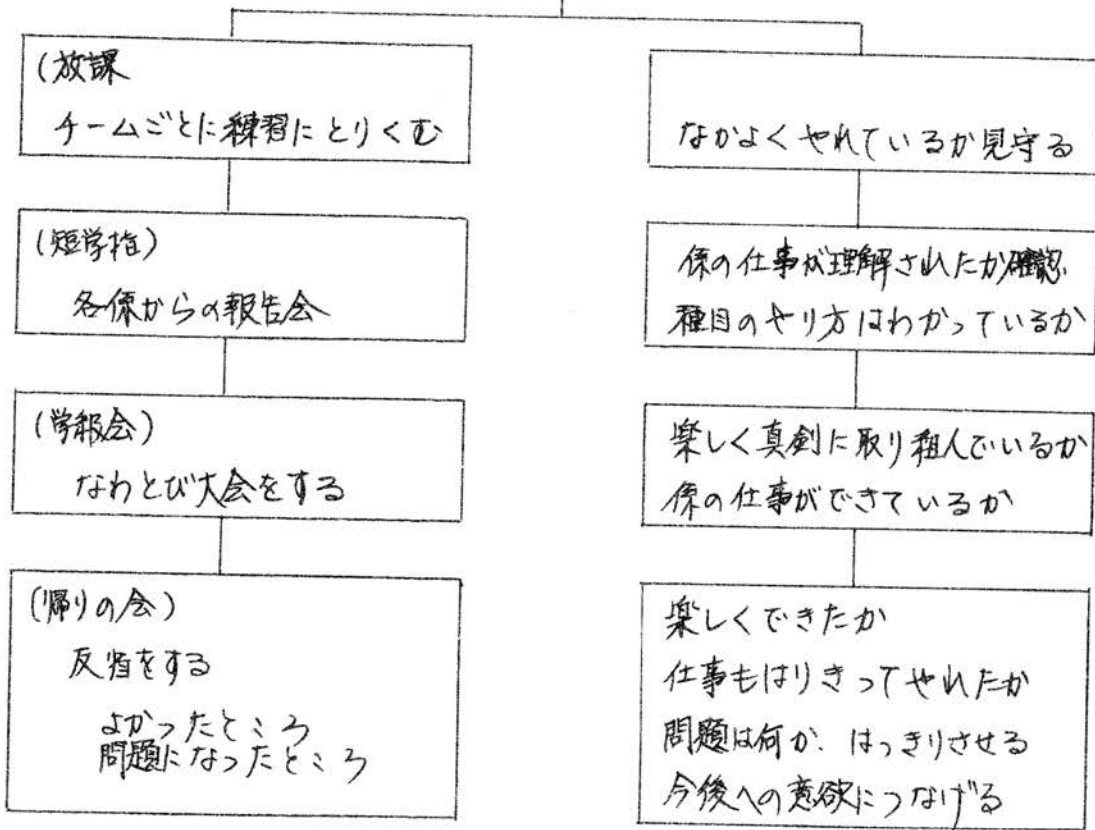 (放課
チームごとに練習にとりくむ
(短学指)
各係からの報告会
(学級会)
なわとび大会をする
(帰りの会)
反省をする
よかったところ
問題になったところ
なかよくやれているか見守る
係の仕事が理解されたか確認
種目のやり方はわかっているか
楽しく真剣に取り組んでいるか
係の仕事ができているか
楽しくできたか
仕事もはりきってやれたか
問題は何か、はっきりさせる
今後への意欲につなげる